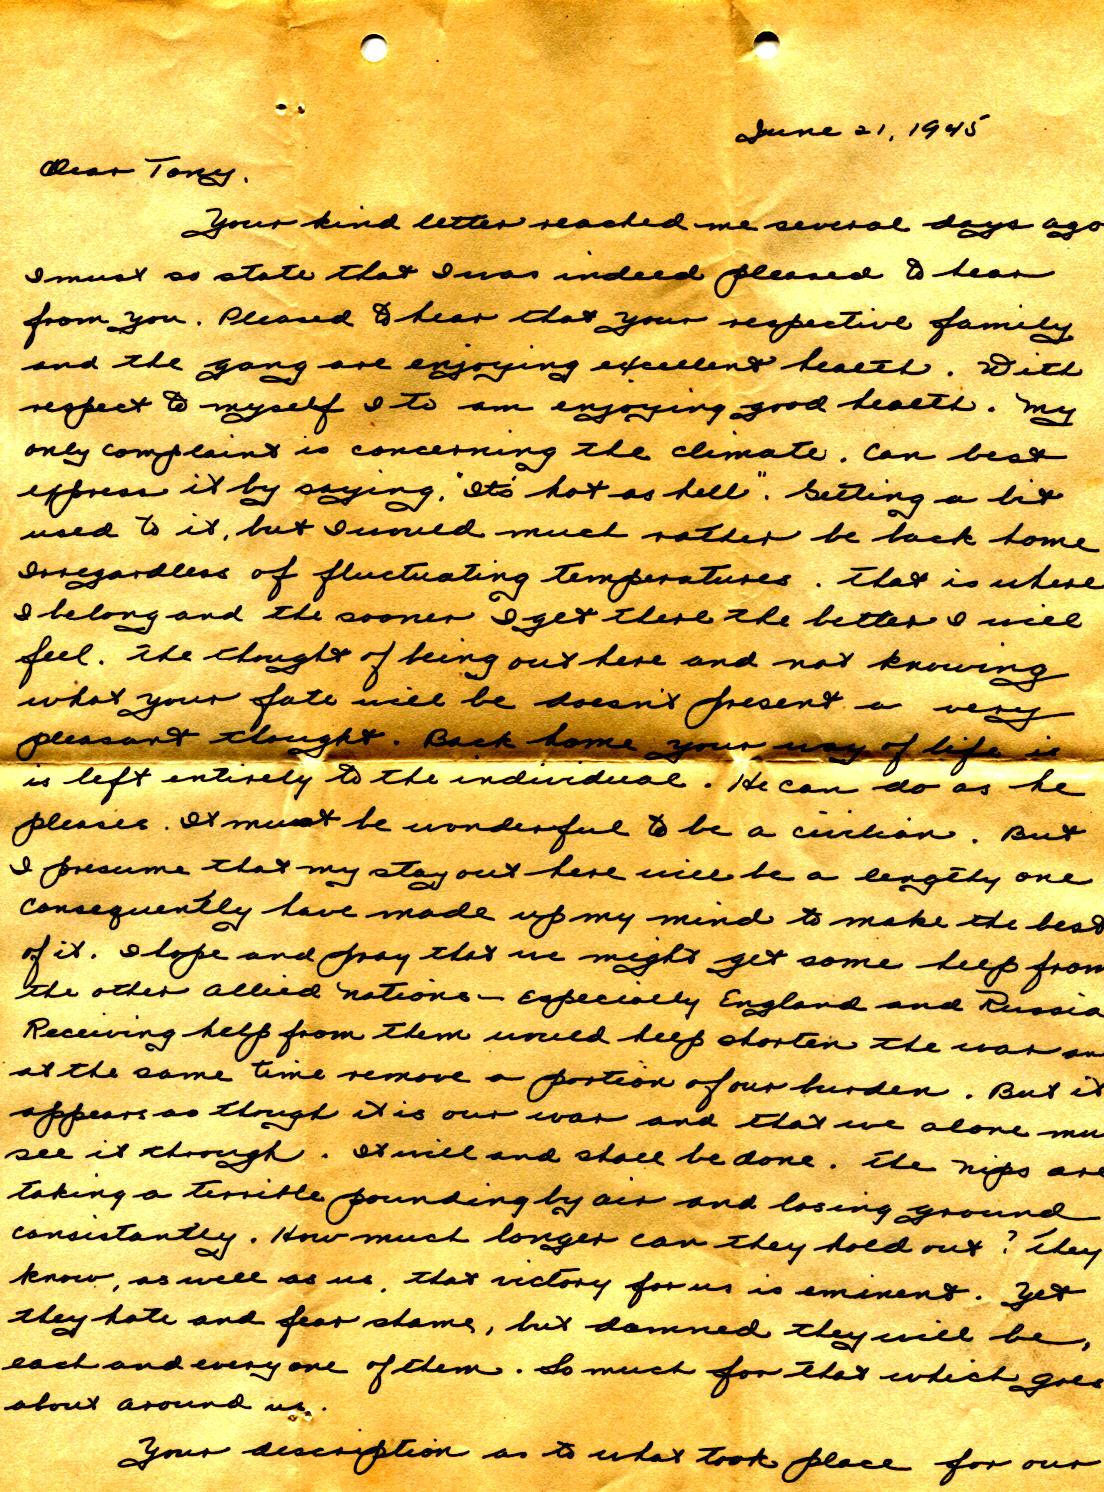 June 21, 1945
Dear Tony.
Your kind letter reached me several days ago
I must so state that I was indeed pleased to hear
from you. Pleased to hear that your respective family
and the gang are enjoying excellent health. With
respect to myself I to am enjoying good health. My
only complaint is concerning the climate. Can best
express it by saying, "Its' hot as hell". Getting a bit
used to it, but I would much rather be back home
Irregardless of fluctuating temperatures. That is where
I belong and the sooner I get there the better I will
feel. The thought of being out here and not knowing
what your fate will be doesn't present a very
pleasant thought. Back home your way of life is
is left entirely to the individual. He can do as he
pleases. It must be wonderful to be a civilian. But
I presume that my stay out here will be a lengthy one
consequently have made up my mind to make the best
of it. I hope and pray that we might get some help from
the other allied nations - especially England and Russia
Receiving help from them would help shorten the war an
at the same time remove a portion of our burden. But it
appears as though it is our war and that we alone mu
see it through. It will and shall be done. The Nips are
taking a terrible pounding by air and losing ground
consistantly. How much longer can they hold out? They
know, as well as us, that victory for us is eminent. Yet
they hate and fear shame, but damned they will be,
each and every one of them. So much for that which goes
about around us.
Your description as to what took place for our